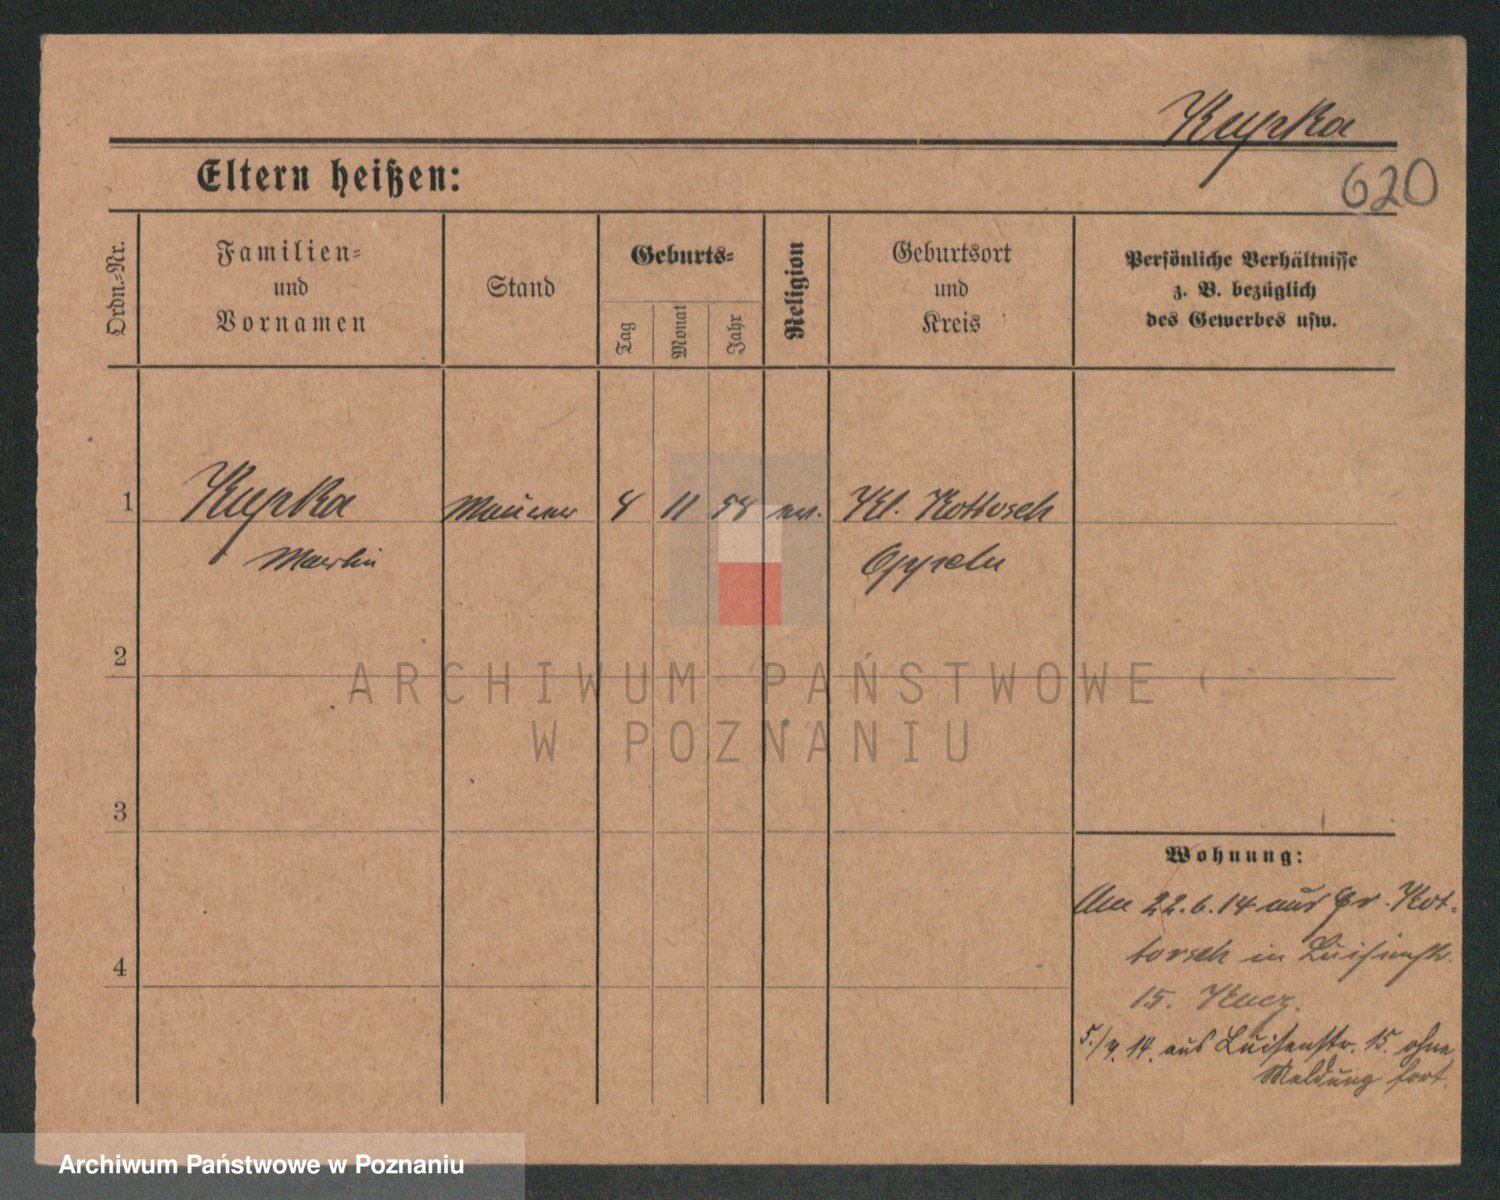 Kupka
620
Eltern heißen:
Ordn.-Nr.
Familien-
und
Vornamen
Stand
Geburts-
Tag
Monat
Jahr
Religion
Geburtsort
und
Kreis
Persönliche Verhältnisse
z. B. bezüglich
des Gewerbes usw.
1
Kupka
Martin
Maurer
8
11
58
Kl. Kottorsch
Oppeln
2
3
4
ARCHIWUM PAŃSTWOWE
W POZNANIU
Wohnung:
Am 22.6.14 aus Gr. Kot-
torsch in Luisenstr.
15.
5./9.14. aus Luisenstr. 15. ohne
Meldung fort.
Archiwum Państwowe w Poznaniu